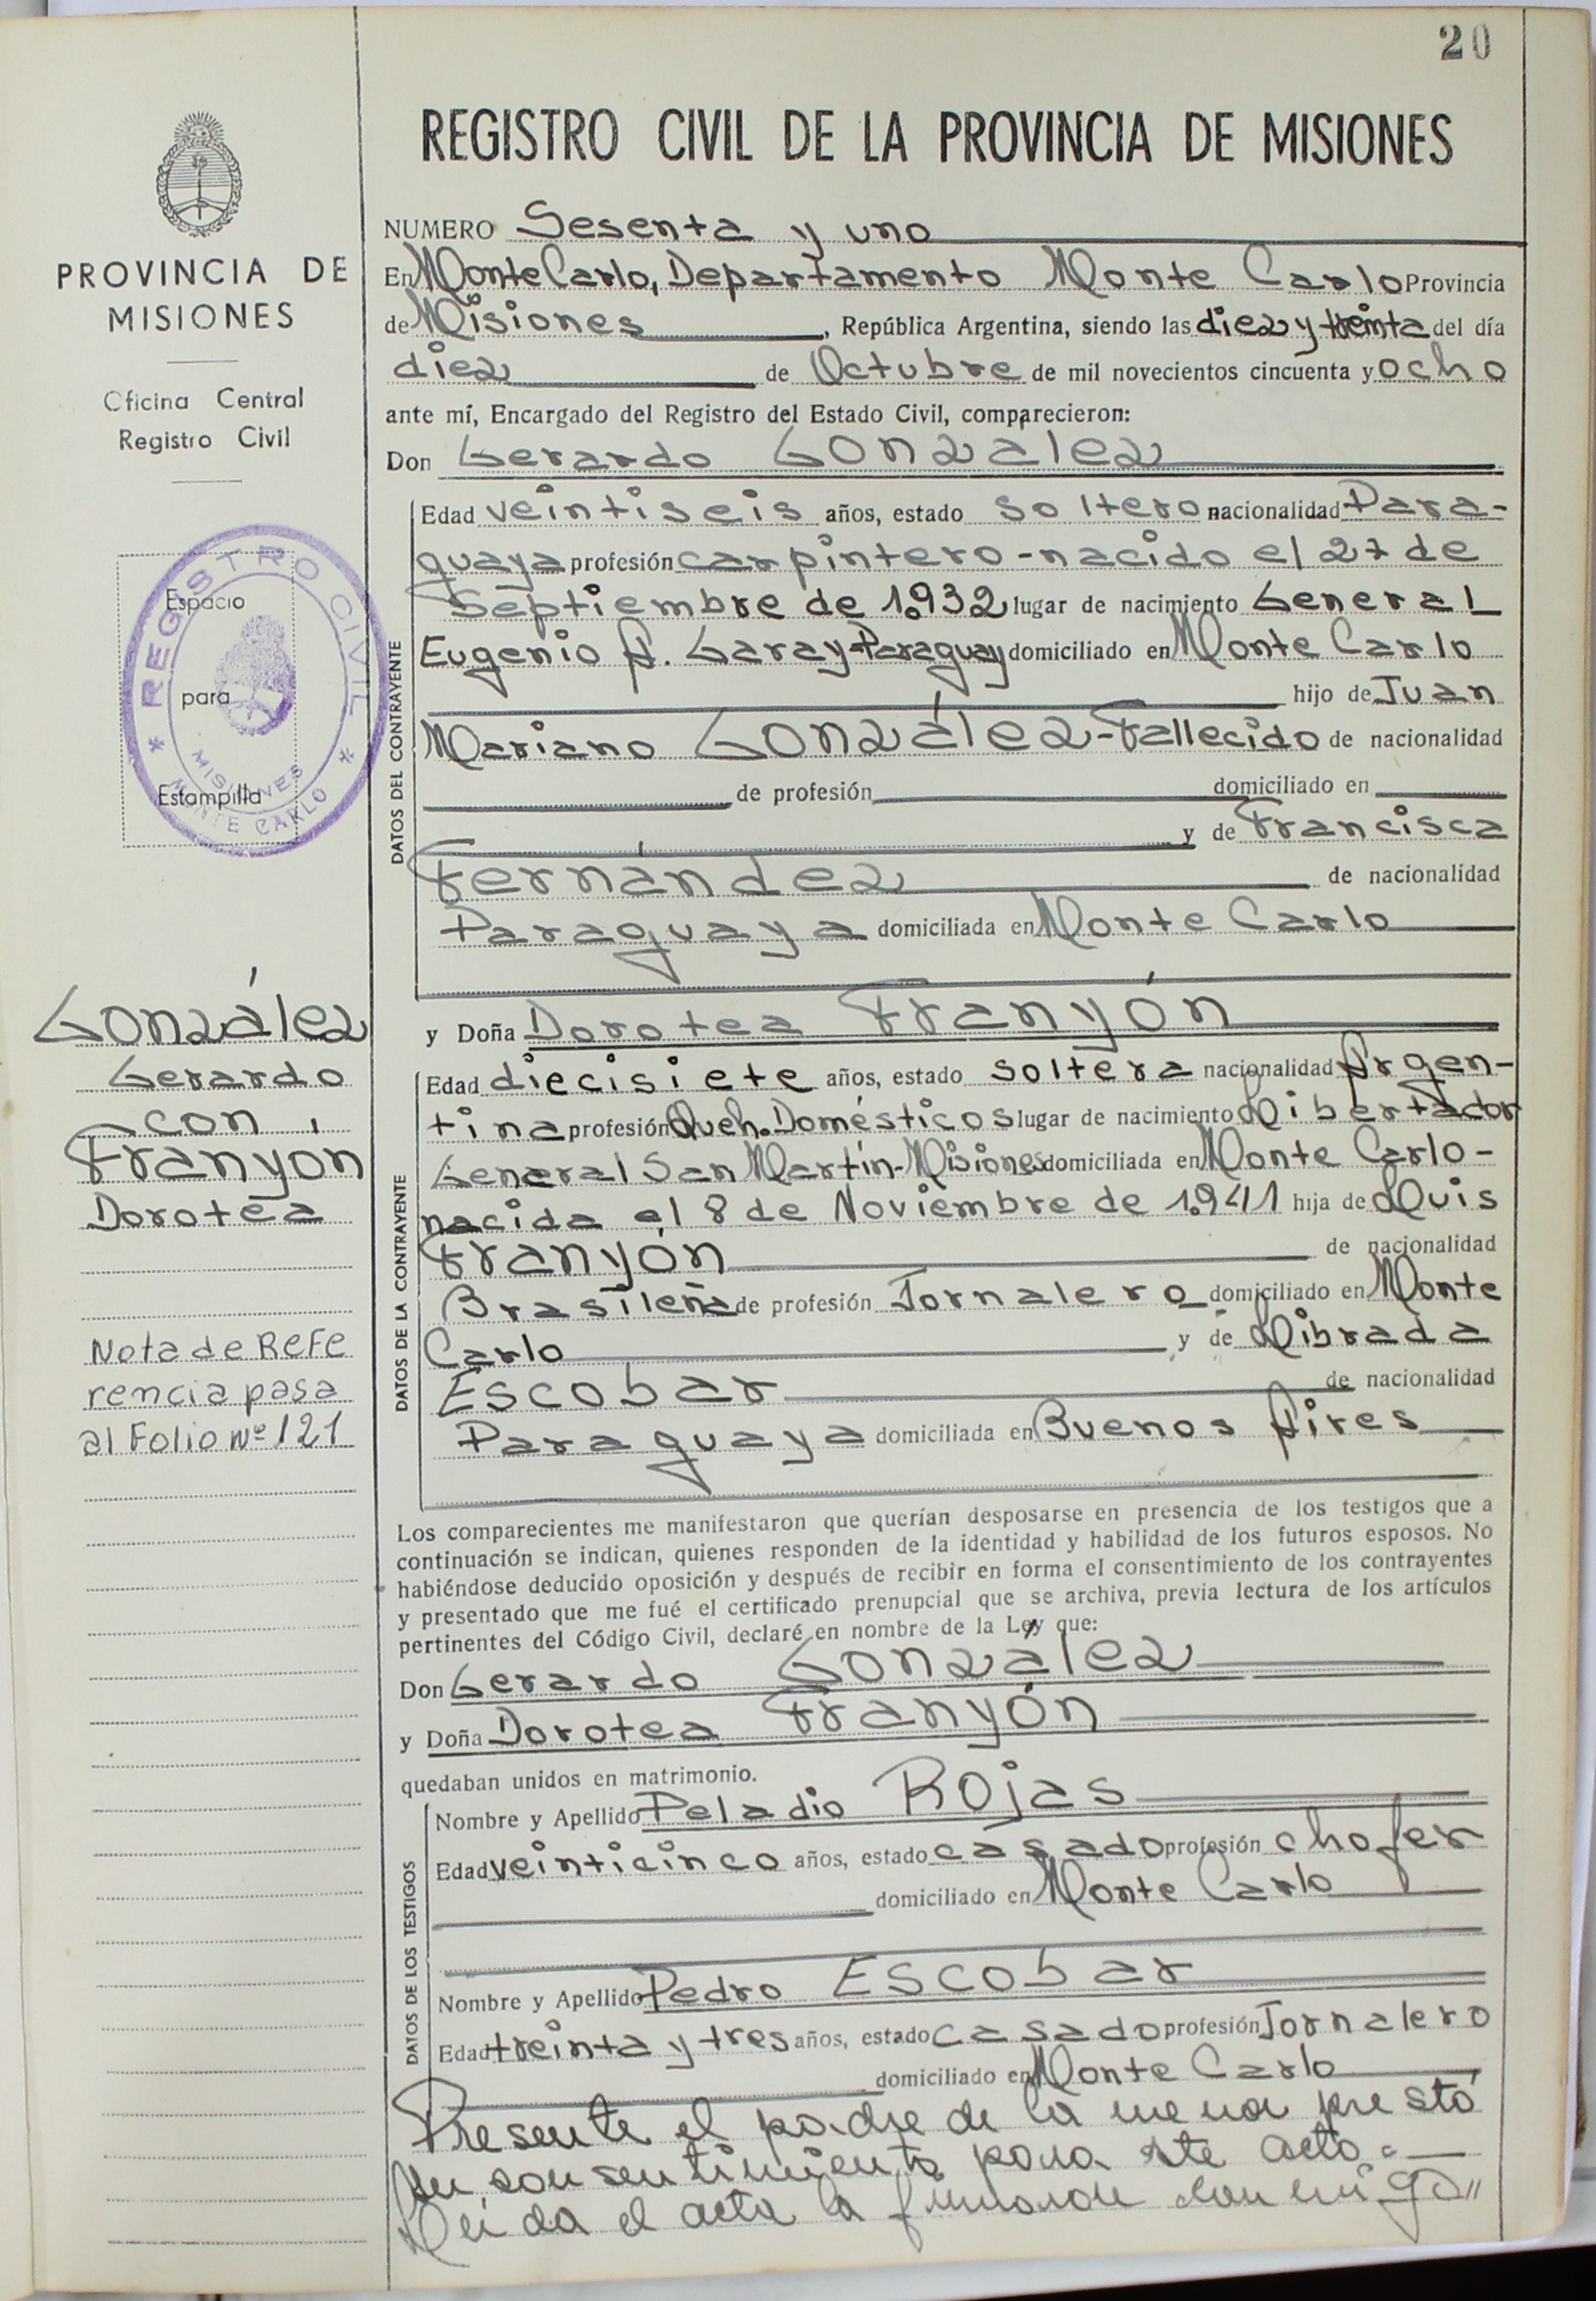 20
REGISTRO CIVIL DE LA PROVINCIA DE MISIONES
PROVINCIA DE
MISIONES
Oficina Central
Registro Civil
REGISTRO CIVIL
MISIONES
MONTE CARLO
Espacio
para
Estampilla
González
Gerardo
con
Franyón
Dorotea
Nota de Refe
rencia pasa
al Folio Nº 121
NUMERO Sesenta y uno
En Monte Carlo, Departamento Monte Carlo Provincia
de Misiones, República Argentina, siendo las diez y treinta del día
diez de Octubre de mil novecientos cincuenta y ocho
ante mí, Encargado del Registro del Estado Civil, comparecieron:
Don Gerardo González
DATOS DEL CONTRAYENTE
Edad veintiseis años, estado soltero nacionalidad Para-
guaya profesión carpintero - nacido el 27 de
Septiembre de 1.932 lugar de nacimiento General
Eugenio A. Garay-Paraguay domiciliado en Monte Carlo
hijo de Juan
Mariano González-Fallecido de nacionalidad
de profesión domiciliado en
y de Francisca
Fernández de nacionalidad
Paraguaya domiciliada en Monte Carlo
y Doña Dorotea Franyón
DATOS DE LA CONTRAYENTE
Edad diecisiete años, estado soltera nacionalidad Argen-
tina profesión Queh. Domésticos lugar de nacimiento Libertador
General San Martín-Misiones domiciliada en Monte Carlo-
nacida el 8 de Noviembre de 1.941 hija de Luis
Franyón de nacionalidad
Brasileña de profesión Jornalero domiciliado en Monte
Carlo y de Librada
Escobar de nacionalidad
Paraguaya domiciliada en Buenos Aires
Los comparecientes me manifestaron que querían desposarse en presencia de los testigos que a
continuación se indican, quienes responden de la identidad y habilidad de los futuros esposos. No
habiéndose deducido oposición y después de recibir en forma el consentimiento de los contrayentes
y presentado que me fué el certificado prenupcial que se archiva, previa lectura de los artículos
pertinentes del Código Civil, declaré en nombre de la Ley que:
Don Gerardo González
y Doña Dorotea Franyón
quedaban unidos en matrimonio.
DATOS DE LOS TESTIGOS
Nombre y Apellido Peladio Rojas
Edad veinticinco años, estado casado profesión chofer
domiciliado en Monte Carlo
Nombre y Apellido Pedro Escobar
Edad treinta y tres años, estado casado profesión Jornalero
domiciliado en Monte Carlo
Presente el padre de la menor prestó
su consentimiento para este acto.
Leida el acta la firmaron con